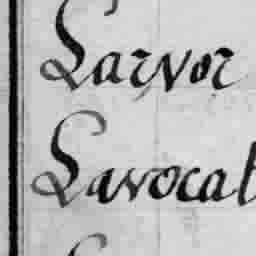 Larvor
Lavocat